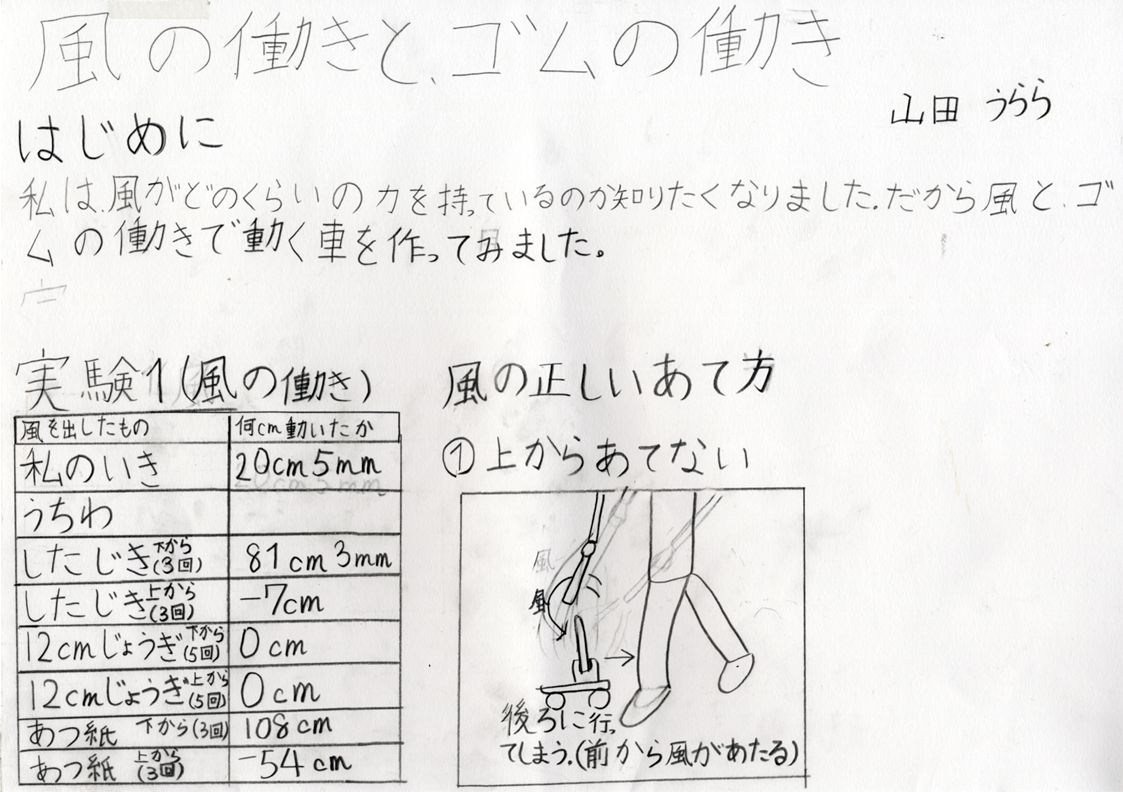 風の働きと、ゴムの働き
山田 うらら
はじめに
私は、風がどのくらいの力を持っているのか知りたくなりました。だから風と、ゴ
ムの働きで動く車を作ってみました。
実験1(風の働き)
風を出したもの 何cm動いたか
私のいき 20cm5mm
うちわ
したじき下から(3回) 81cm3mm
したじき上から(3回) -7cm
12cmじょうぎ下から(5回) 0cm
12cmじょうぎ上から(5回) 0cm
あつ紙 下から(3回) 108cm
あつ紙 上から(3回) -54cm
風の正しいあて方
①上からあてない
風
風
後ろに行っ
てしまう。(前から風があたる)